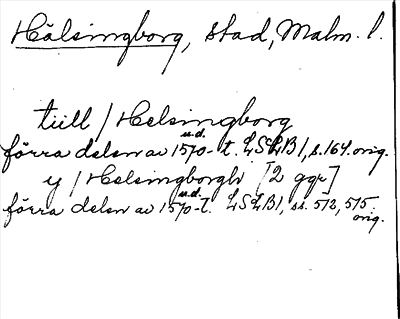 Hälsingborg, stad, Malm. l.
tiill / Helsingborg
u.d.
förra delen av 1570-t. LSLB1, s. 164. orig.
y / Helsingborgh [2 ggr]
u.d.
förra delen av 1570-t. LSLB1, ss. 572, 575.
orig.